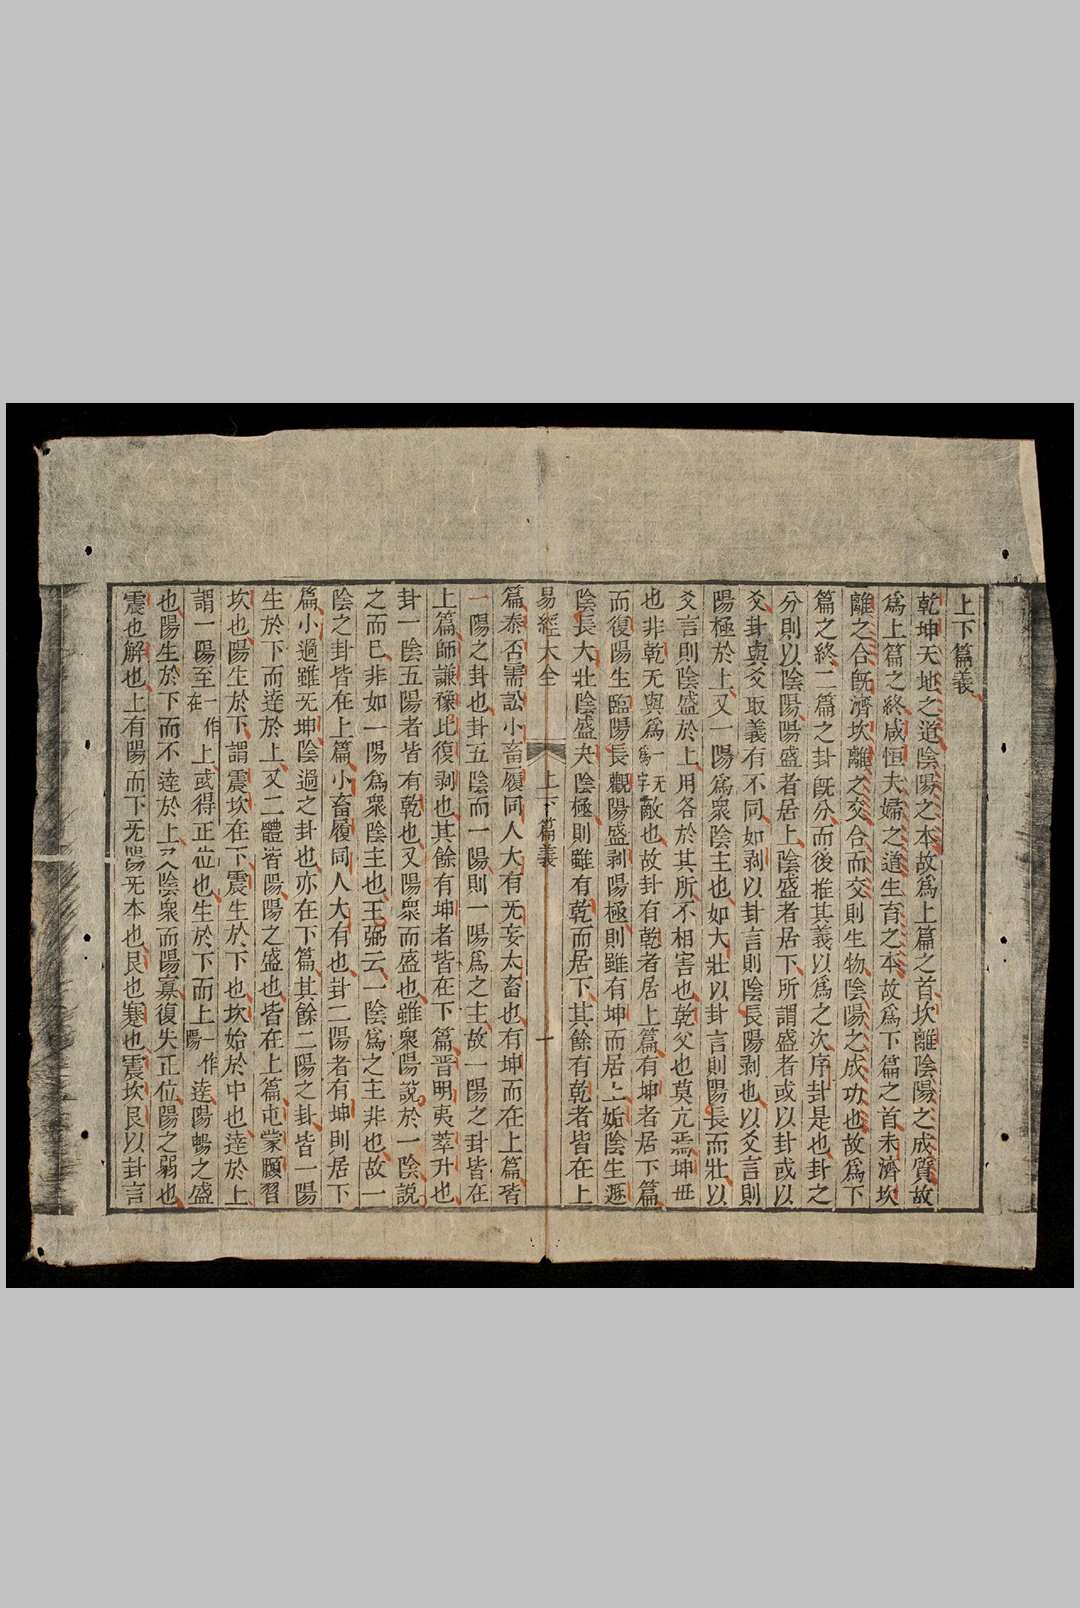 上下篇義
乾坤天地之道陰陽之本故爲上篇之首坎離陰陽之成質故
爲上篇之終咸恒夫婦之道生育之本故爲下篇之首未濟坎
離之合旣濟坎離之交合而交則生物陰陽之成功也故爲下
篇之終二篇之卦旣分而後推其義以爲之次序卦是也卦之
分則以陰陽陽盛者居上陰盛者居下所謂盛者或以卦或以
爻卦與爻取義有不同如剥以卦言則陰長陽剥也以爻言則
陽極於上又一陽爲衆陰主也如大壯以卦言則陽長而壯以
爻言則陰盛於上用各於其所不相害也乾父也莫亢焉坤毋
也非乾无與爲一无爲字敵也故卦有乾者居上篇有坤者居下篇
而復陽生臨陽長觀陽盛剥陽極則雖有坤而居上姤陰生遯
陰長大壯陰盛夬陰極則雖有乾而居下其餘有乾者皆在上
易經大全 上下篇義 十
篇泰否需訟小畜履同人大有无妄大畜也有坤而在上篇皆
一陽之卦也卦五陰而一陽則一陽爲之主故一陽之卦皆在
上篇師謙豫比復剥也其餘有坤者皆在下篇晋明夷萃升也
卦一陰五陽者皆有乾也又陽衆而盛也雖衆陽說於一陰說
之而已非如一陽爲衆陰主也王弼云一陰爲之主非也故一
陰之卦皆在上篇小畜履同人大有也卦二陽者有坤則居下
篇小過雖无坤陰過之卦也亦在下篇其餘二陽之卦皆一陽
生於下而達於上又二體皆陽陽之盛也皆在上篇屯蒙頤習
坎也陽生於下謂震坎在下震生於下也坎始於中也達於上
謂一陽至一作在上或得正位也生於下而上一作陽達陽暢之盛
也陽生於下而不達於上又陰衆而陽寡復失正位陽之弱也
震也解也上有陽而下无陽无本也艮也蹇也震坎艮以卦言